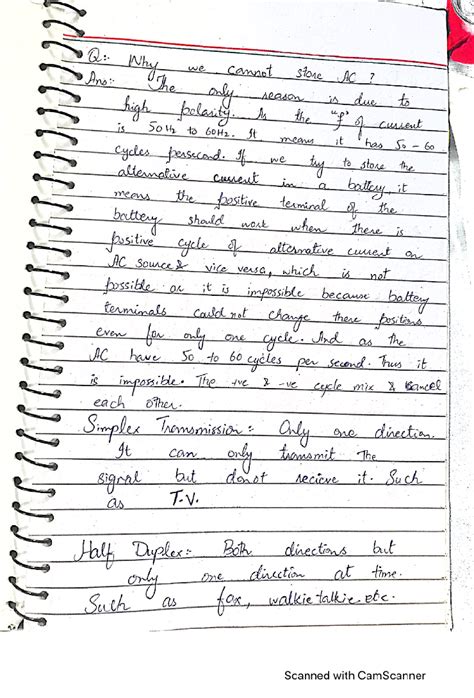 Q:- Why we cannot store AC ?
Ans:- The only reason is due to
high polarity. As the "f" of current
is 50Hz to 60Hz. It means it has 50-60
cycles persecond. If we try to store the
alternative current in a battery, it
means the positive terminal of the
battery should work when there is
positive cycle of alternative current on
AC source & vice versa, which is not
possible or it is impossible because battery
terminals could not change there positions
even for only one cycle. And as the
AC have 50 to 60 cycles per second. Thus it
is impossible. The +ve & -ve cycle mix & cancel
each other.
Simplex Transmission:- Only one direction.
It can only transmit The
signal but donot recieve it. Such
as T.V.
Half Duplex:- Both directions but
only one direction at time.
Such as fax, walkie talkie etc.
Scanned with CamScanner